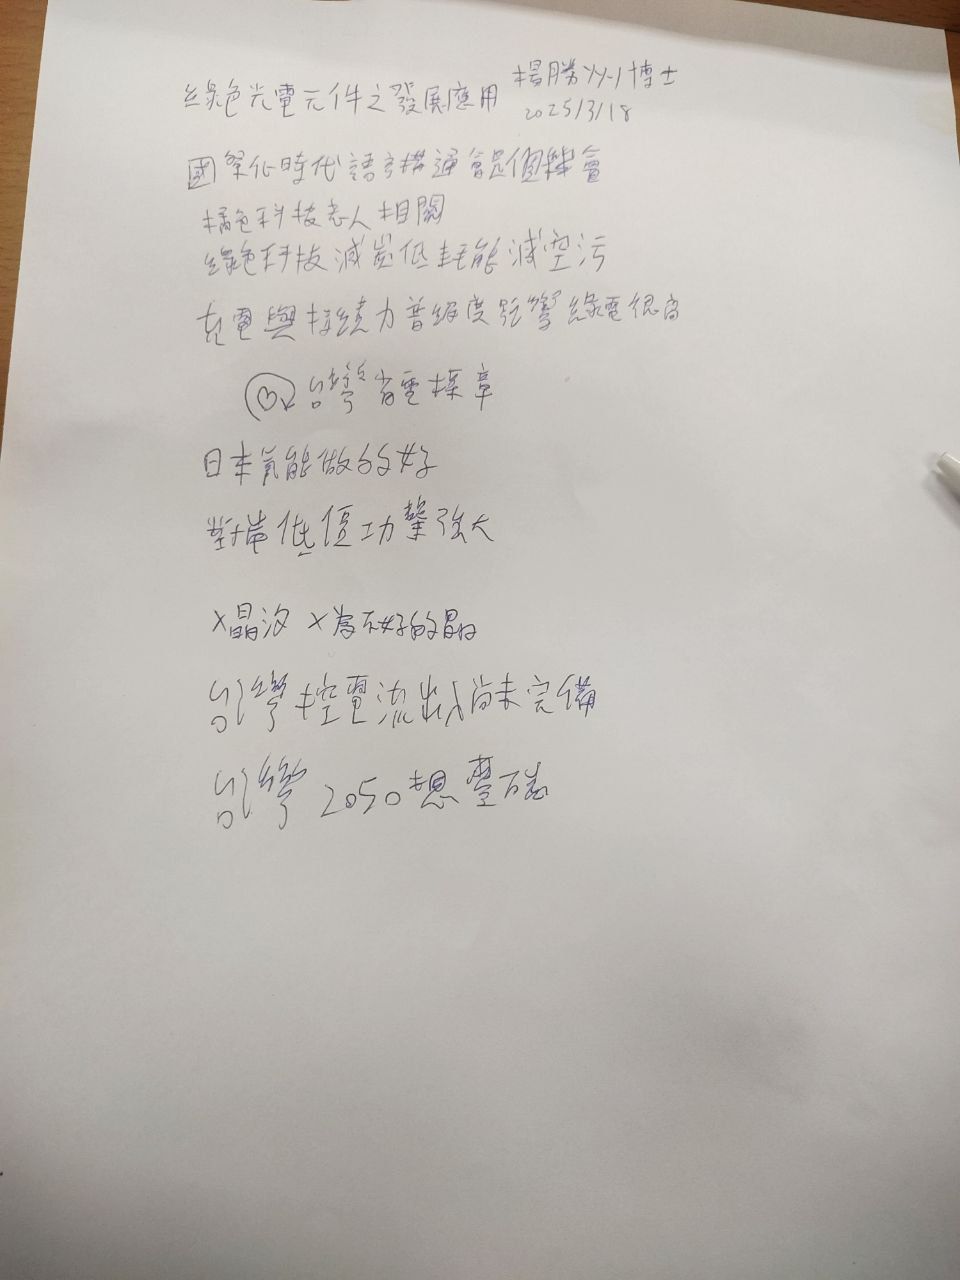 綠色光電元件之發展應用 楊勝州博士
2025/3/18
國際化時代語言溝通會是個機會
橘色科技老人相關
綠色科技減炭低耗能減空污
充電與持續力普級度影響綠電很高
台灣省電標章
日本氫能做的好
對岸低價功擊強大
X晶沙 X為不好的晶
台灣控電流出 尚未完備
台灣2050想